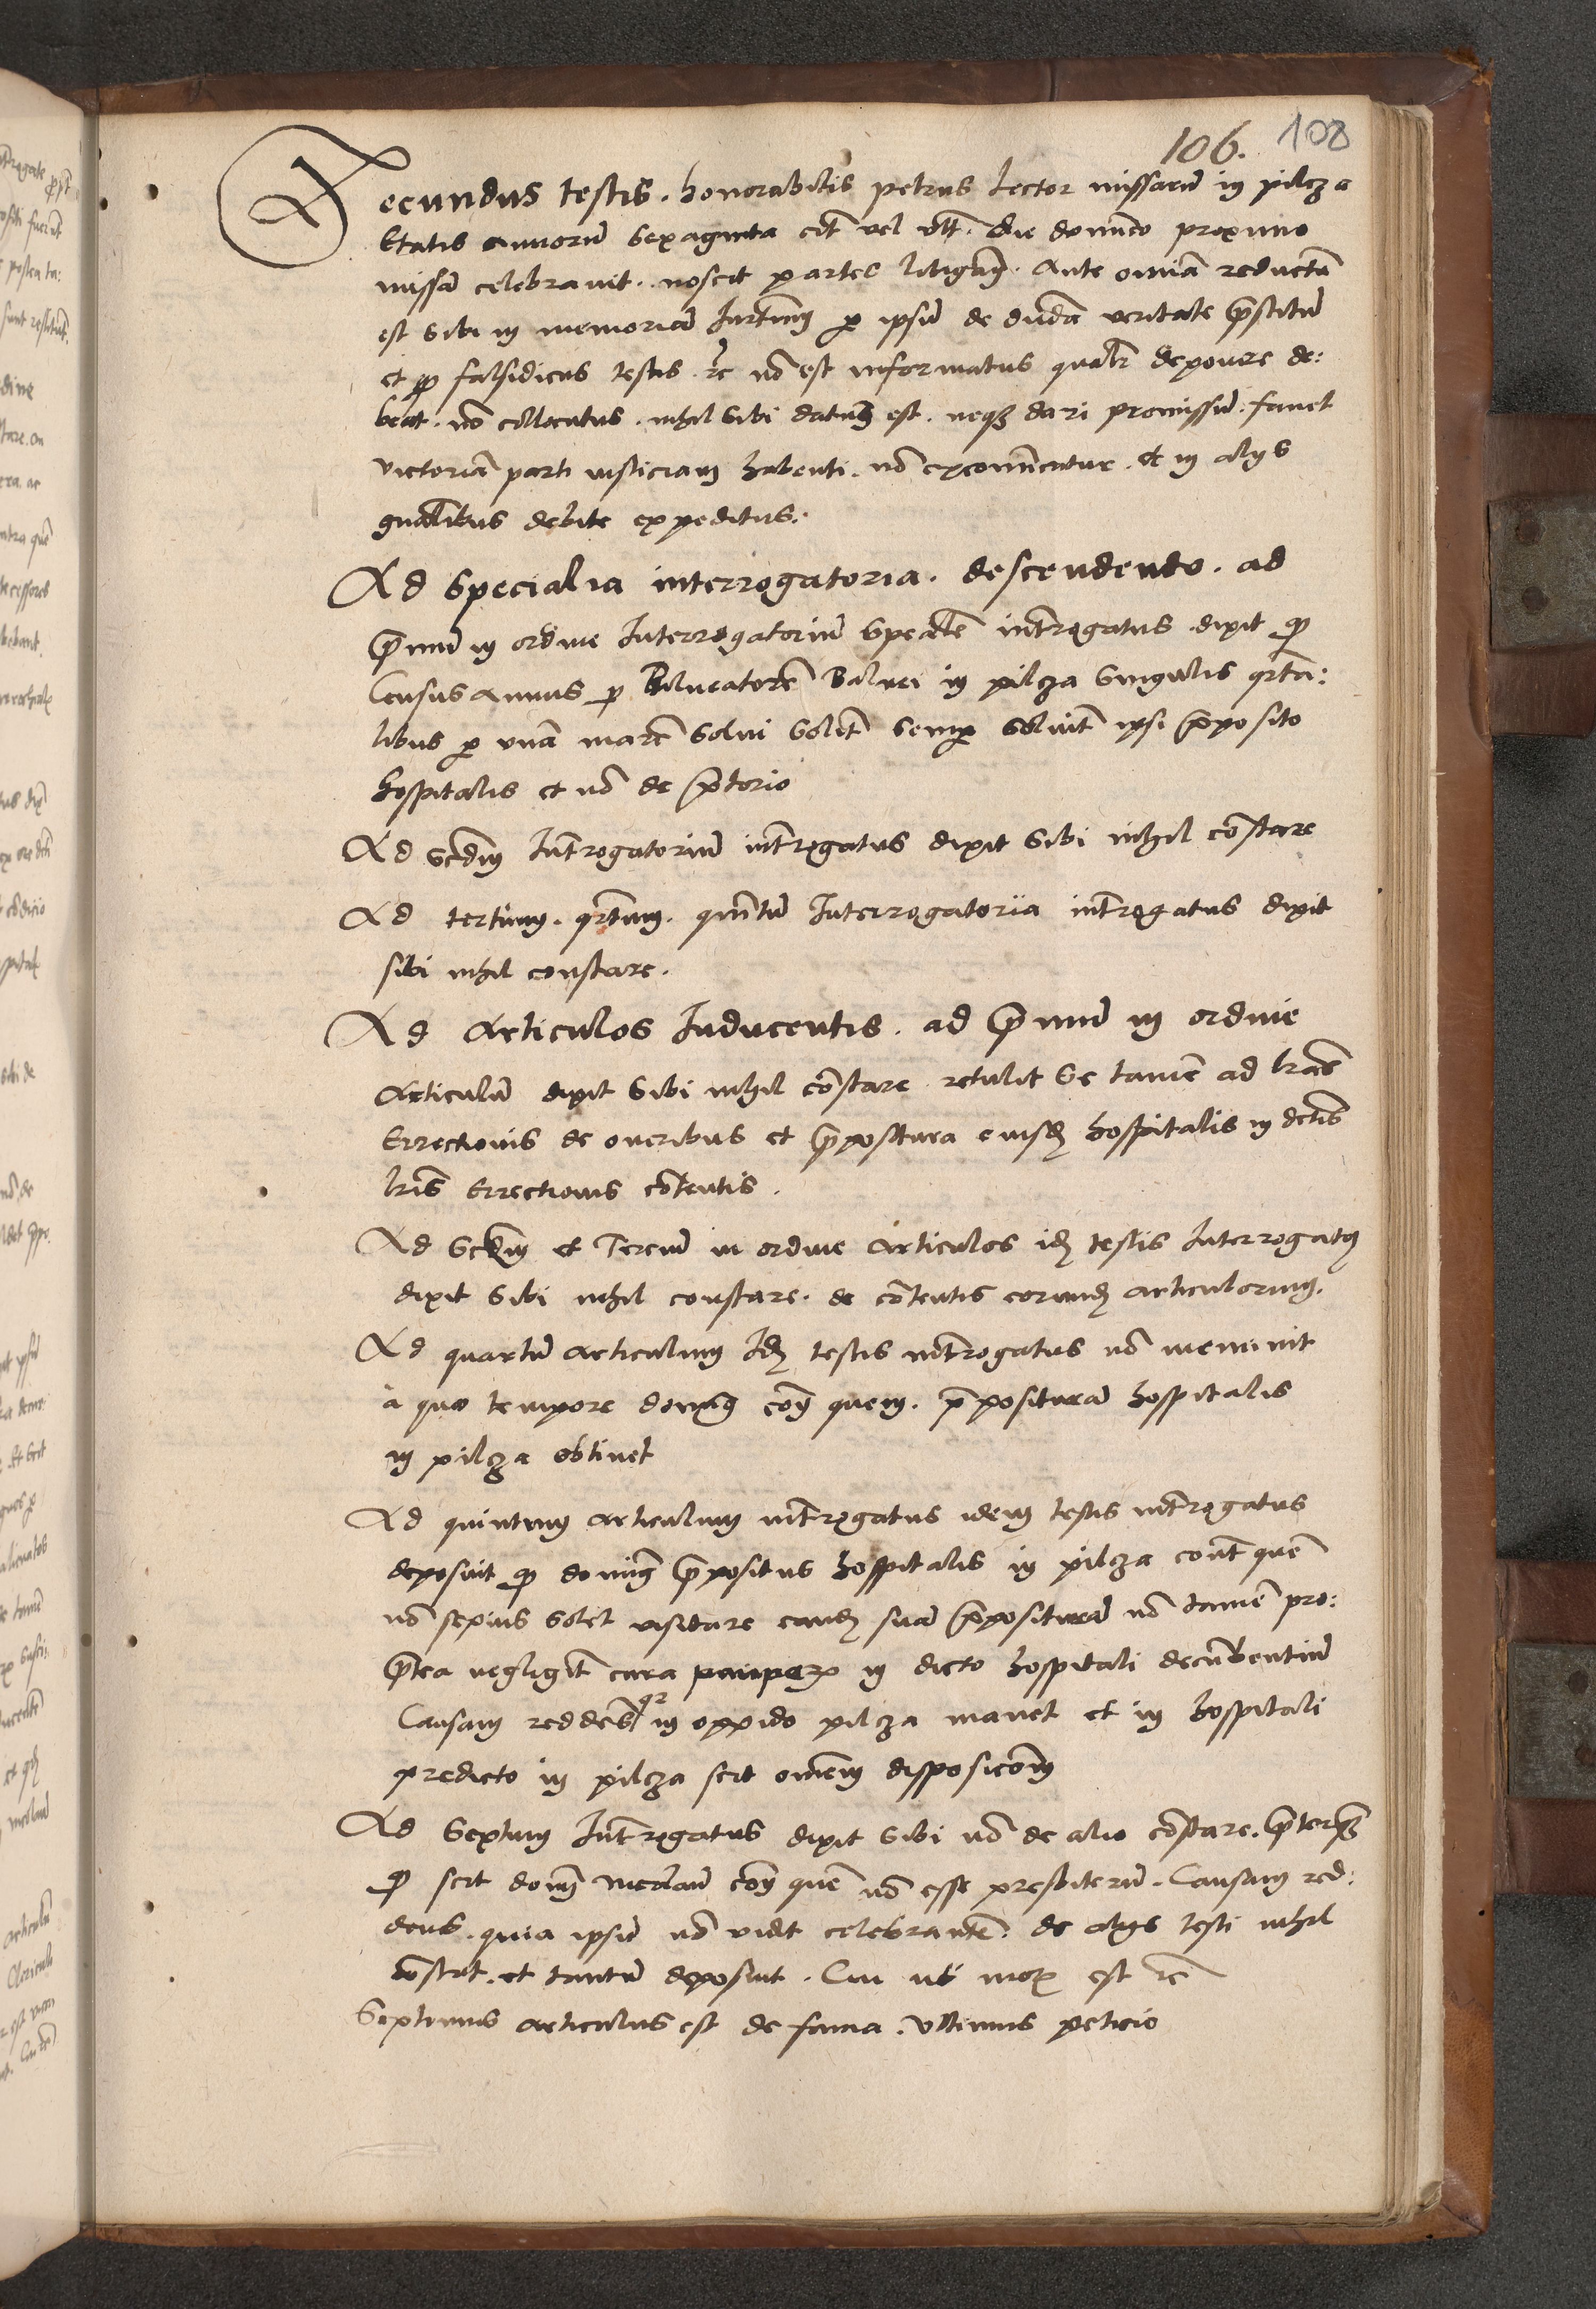 106. 108
Secundus testis. honorabilis petrus lector missarũ in pilcza
Etatis annorũ sexaginta cͥt vel vlt̃. die dominico proximo
missã celebravit. noscit partes litigañ. Ante omnia reductũ
est sibi in memoriã Iurtm̃ p ipsũ de dicñda veritate p̃stitũ
et q̃ falsidicus testis rc nõ est informatus qualr̃ deponere de:
beat. nõ collocutus. nihil sibi datum est. neqз dari promissũ. fauet
victoriã parti iusticiam habenti. nõ excom̃icatur. et in alijs
gñalibus debite expeditus.
Ad Specialia interrogatoria. descendendo. ad
p̃mũ in ordine Interrogatoriũ speciale int̃rogatus dixit q̃
Census annuus p Balneatorẽ Balnei in pilcza singulis qrta:
libus p vnã marcã solui solit̃ semp soluit̃ ipsi p̃posito
hospitalis et nõ de p̃torio
Ad scd̃m Int̃rogatoriũ int̃rogatus dixit sibi nihil cõstare
Ad tertium. qrtum. quintũ Interrogatoria int̃rogatus dixit
sibi nihil constare.
Ad Articulos Inducentis. ad p̃mũ in ordine
Articulũ dixit sibi nihil cõstare retulit se tamẽ ad lr̃as
Errectionis de oneribus et p̃positura eiusdз hospitalis in dictis
lr̃is Errectionis cõtentis.
Ad Scd̃m et Terciũ in ordine Articulos idз testis Interrogatus
dixit sibi nihil constare. de cõtentis eorundз articulorum.
Ad quartũ articulum Idз testis int̃rogatus nõ meminit
a quo tempore dominus cont̃ quem. p̃positurã hospitalis
in pilcza obtinet
Ad quintum articulum int̃rogatus idem testis int̃rogatus
deposuit q̃ dominus p̃positus hospitalis in pilcza cont̃ quẽ
nõ sepius solet visitare eandз suã p̃posituram nõ tamẽ pro:
pterea negligit̃ cura pauperũ in dicto hospitali decũbentiũ
Causam reddens qr in oppido pilcza manet et in hospitali
predicto in pilcza scit omnem disposicõm
Ad Sextum Int̃rogatus dixit sibi nõ de alio cõstare. p̃terqз
q̃ scit dominũ cont̃ quẽ nõ esse presbiterũ. Causam red:
dens. quia ipsũ nõ vidit celebrantẽ. de alijs testi nihil
cõstat. et tantũ deposuit. Cui ut moris est rc
Septimus articulus est de fama. Vltimus peticio